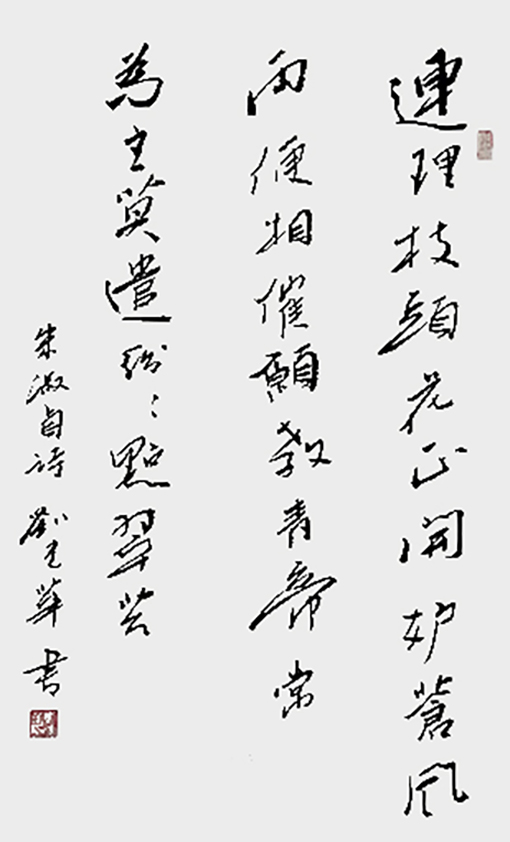 連理枝頭花正開妒蒼風
雨便相催願教青帝常
為主莫遣紛〻點翠苔
朱淑貞詩 劉華書